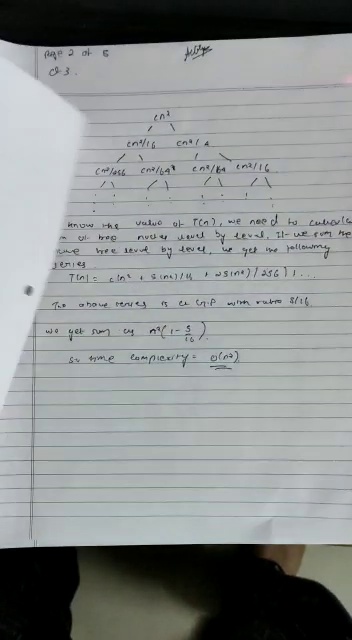 Page 2 of 5
Q.3.
cn²
cn²/16 cn²/4
cn²/256 cn²/64 cn²/64 cn²/16
know the value of T(n), we need to calculate
of tree nodes level by level. If we sum the
above tree level by level, we get the following
series
T(n) = c(n² + 5(n²)/16 + 25(n²)/256) + ...
The above series is a G.P with ratio 5/16
we get sum as n²(1 - 5/16).
So time complexity = O(n²)